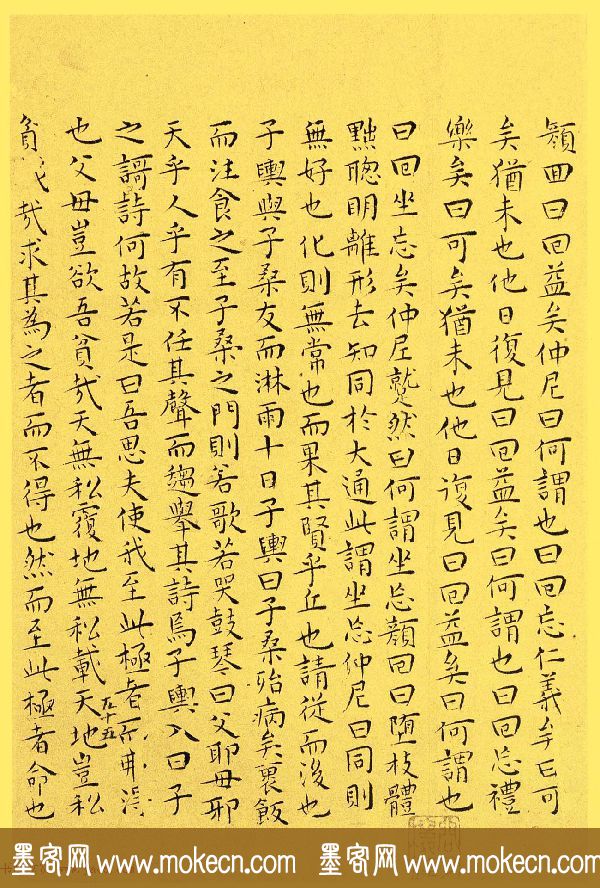 顏回曰回益矣仲尼曰何謂也曰回忘仁義矣曰可
矣猶未也他日復見曰回益矣曰何謂也曰回忘禮
樂矣曰可矣猶未也他日復見曰回益矣曰何謂也
曰回坐忘矣仲尼蹵然曰何謂坐忘顏回曰墮枝體
黜聰明離形去知同於大通此謂坐忘仲尼曰同則
無好也化則無常也而果其賢乎丘也請從而後也
子輿與子桑友而淋雨十日子輿曰子桑殆病矣裹飯
而往食之至子桑之門則若歌若哭鼓琴曰父耶母耶
天乎人乎有不任其聲而趨舉其詩焉子輿入曰子
之謌詩何故若是曰吾思夫使我至此極者而弗得
五十五
也父母豈欲吾貧哉天無私覆地無私載天地豈私
貧我哉求其為之者而不得也然而至此極者命也
墨客网 www.mokecn.com 墨客网 www.mokecn.com